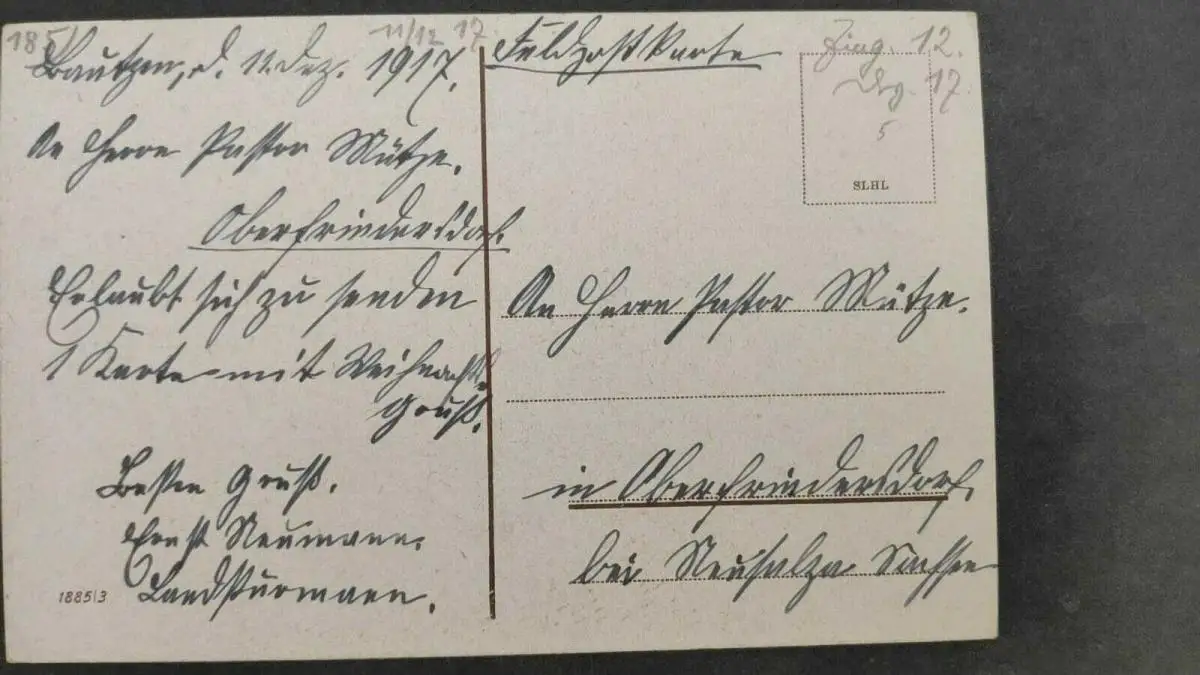 185
11/12 17
Bautzen, d. 11. Dez. 1917.
An Herrn Pastor Mütze.
Oberfriedersdorf.
Erlaubt sich zu senden
1 Karte mit Weihnachts-
Gruß.
Besten Gruß.
Ernst Neumann.
Landsturmmann.
1885|3
Feldpostkarte
Eing. 12.
17.
5
SLHL
An Herrn Pastor Mütze.
in Oberfriedersdorf.
bei Neusalza Sachsen